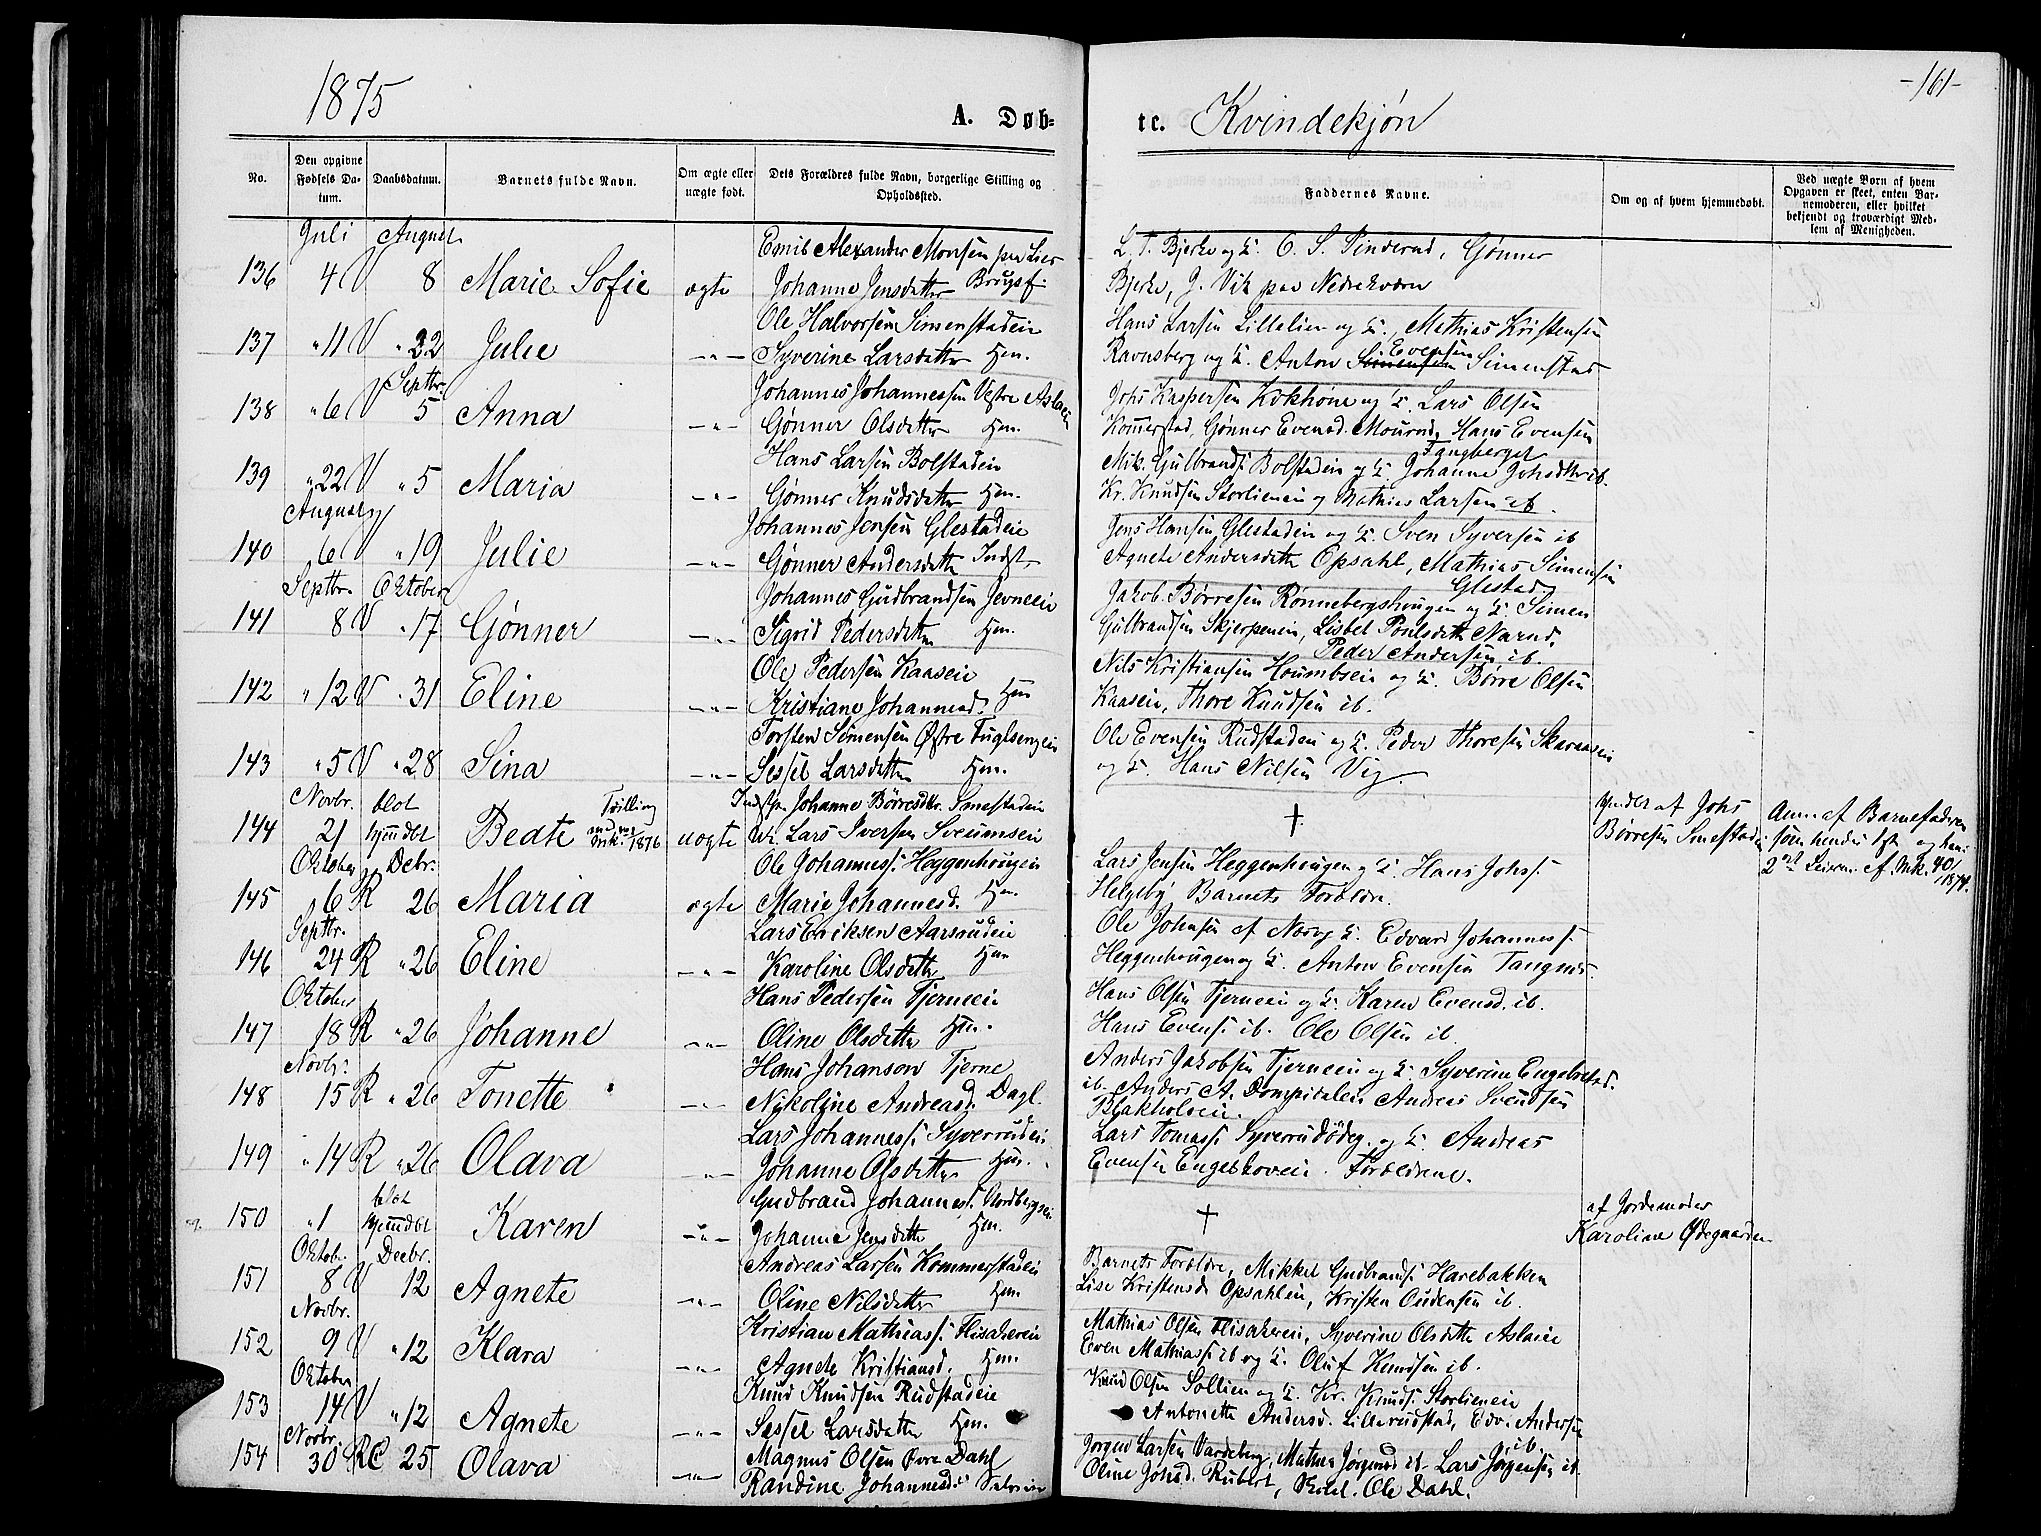 1875
-161-
A. Døb= te. Kvindekjøn
No. Den opgivne Fødsels Datum. Daabsdatum. Barnets fulde Navn. Om ægte eller uægte født. Dets Forældres fulde Navn, borgerlige Stilling og Opholdssted. Faddernes Navne. Om og af hvem hjemmedøbt. Ved uægte Born af hvem Opgaven er skeet, enten Barnemoderen, eller hvilket bekjendt og troværdigt Medlem af Menigheden.
Juli August Emil Alexander Monsen paa Lier L. T. Bjerke og E. O. S. Pinderud, Gønner
136 4 V 8 Marie Sofie ægte Johanne Jensdatter Brugsf. Bjerke, J. Vik paa Nedrekværn
Ole Halvorsen Simenstadeie Hans Larsen Lillelien og E., Mathias Kristensen
137 " 11 V " 22 Julie -"- Syverine Larsdatter Hm. Ravnsberg og E. Anton Simensen Evensen Simenstad
Septbr. Johannes Johannessen Vestre Aslaeie Johs Kaspersen Kokhøne og E. Lars Olsen
138 " 6 V 5 Anna -"- Gønner Olsdatter Hm. Kommerstad, Gønner Evensd. Mourud, Hans Evensen
Hans Larsen Bolstadeie Tangberget Mik. Gulbrands. Bolstadeie og E. Johanne Johsdtr ib.
139 " 22 V " 5 Maria -"- Gønner Knudsdatter Hm. Kr. Knudsen Storlieneie og Mathias Larsen ib.
August Johannes Jensen Glestadeie Jens Hansen Glestadeie og E. Sven Syversen ib
140 6 V " 19 Julie -"- Gønner Andersdatter Indst. Agnete Andersdatter Opsahl, Mathias Simensen
Septbr. Oktober Johannes Gudbrandsen Jevneeie Glestad Jakob Børresen Rønnebergshougen og E. Simen
141 8 V " 17 Gønner -"- Sigrid Pedersdatter Hm. Gulbrandsen Skjerpeneie, Lisbet Poulsdatter Narud,
Ole Pedersen Kaaseie Peder Andersen ib. Nils Kristiansen Houmbseie og E. Børre Olsen
142 " 12 V " 31 Eline -"- Kristiane Johannesd. Hm Kaaseie, Thore Knudsen ib.
Torsten Simensen Østre Fuglsengeie Ole Evensen Rudstadeie og E. Peder Thoresen Skaraaseie
143 " 5 V " 28 Sina -"- Sessel Larsdatter Hm. og E. Hans Nilsen Vig.
Novbr. blot Tvilling Indst. Johanne Børresdtr. Smestadeie Hmdbt af Johs Anm. af Barnefaderen
144 21 hjmdbt Beate mk. 1876 uægte Lars Iversen Sveumseie † Børresen Smestadeie som hendes 1st og hans 2net Leierm. cf. Mk. 40/1874.
Oktober Debr. Ole Johanness. Heggenhougeie Lars Jensen Heggenhougen og E. Hans Johs.
145 6 R 26 Maria ægte Marie Johannesd. Hm. Helgeby, Barnets Forældre.
Septbr. Lars Eriksen Aarsrudeie Ole Johnsen af Norv. E. Edvard Johanness.
146 24 R " 26 Eline -"- Karoline Olsdatter Hm Heggenhougen og E. Anton Evensen Tangnes.
Oktober Hans Pedersen Tjerneeie Hans Olsen Tjerneeie og E. Karen Evensd. ib.
147 18 R " 26 Johanne -"- Oline Olsdatter Hm. Hans Evens. ib. Ole Olsen ib.
Novbr. Hans Johanson Tjerne Anders Jakobsen Tjerneeie og E. Syverine Engebretsd.
148 15 R " 26 Tonette -"- Nikoline Andreasd. Dagl. ib. Anders A. Dompitalen Andreas Svendsen Blakholseie.
Lars Johanness. Syverrudeie Lars Tomass. Syverrudødeg. og E. Andreas
149 " 14 R " 26 Olava -"- Johanne Olsdatter Hm. Evensen Engeshoveie. Forældrene.
blot Gudbrand Johanness. Nordbergseie af Jordemoder
150 " 1 hjmdbt Karen -"- Johanne Jensdatter Hm. † Karoline Ødegaarden
Oktobr. Decbr. Andreas Larsen Kommerstadeie Barnets Forældre, Mikkel Gudbrands. Harebakken
151 8 V 12 Agnete -"- Oline Nilsdatter Hm Lise Kristensd. Opsahleie, Kristen Oudensen ib.
Novbr. Kristian Mathiass. Flisakereie Mathias Olsen Flisakereie, Syverine Olsdatter Aslaeie
152 9 V " 12 Klara -"- Agnete Kristiansd. Hm. Even Mathiass. ib og E. Oluf Knudsen ib.
Oktober Knud Knudsen Rudstadeie Knud Olsen Sollien og E. Kr. Knuds. Storlieneie
153 14 V " 12 Agnete -"- Sessel Larsdatter Hm. Antonette Andersd. Lillerudstad, Edv. Andersen ib.
Novbr. Magnus Olsen Øvre Dahl Jørgen Larsen Vardeberg, Mathea Jørgensd ib. Lars Jørgensen ib
154 30 R 25 Olava -"- Randine Johannesd. Oline Johsd. Rubert, Ole Dahl.